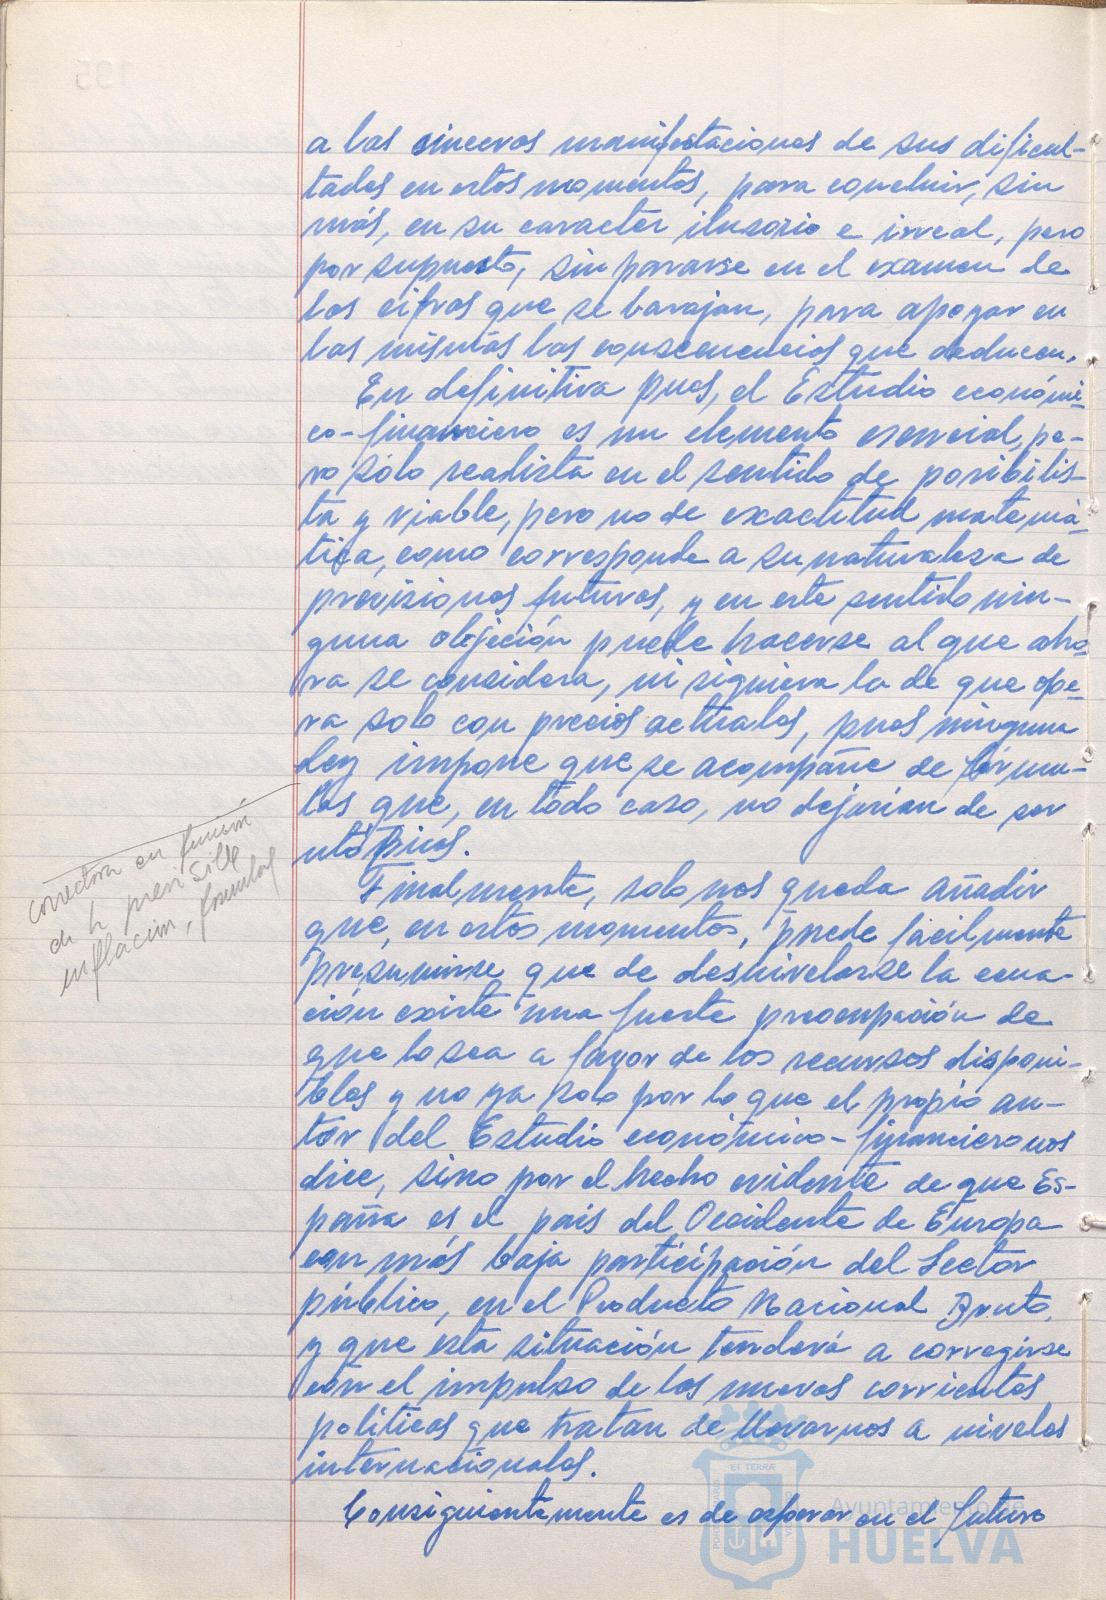 a las sinceras manifestaciones de sus dificul-
tades en estos momentos, para concluir, sin
más, en su caracter ilusorio e irreal, pero
por supuesto, sin pararse en el examen de
las cifras que se barajan, para apoyar en
las mismas las consecuencias que deducen.
En definitiva pues, el Estudio económi-
co-financiero es un elemento esencial, pe-
ro sólo realista en el sentido de posibilis-
ta y viable, pero no de exactitud matemá-
tica, como corresponde a su naturaleza de
previsiones futuras, y en este sentido nin-
guna objeción puede hacerse al que aho-
ra se considera, ni siquiera la de que ope-
ra solo con precios actuales, pues ninguna
Ley impone que se acompañe de fórmu-
las que, en todo caso, no dejarían de ser
utópicas.
correctora en función
de la previsible
inflación, formulas
Finalmente, solo nos queda añadir
que, en estos momentos, puede facilmente
presumirse que de desnivelarse la ecua-
ción existe una fuerte preocupación de
que lo sea a favor de los recursos disponi-
bles y no ya solo por lo que el propio au-
tor del Estudio económico-financiero nos
dice, sino por el hecho evidente de que Es-
paña es el pais del Occidente de Europa
con más baja participación del Sector
público, en el Producto Nacional Bruto,
y que esta situación tenderá a corregirse
con el impulso de las nuevas corrientes
politicas que tratan de llevarnos a niveles
internacionales.
Consiguientemente es de esperar en el futuro
ET TERRÆ
Ayuntamiento de
HUELVA